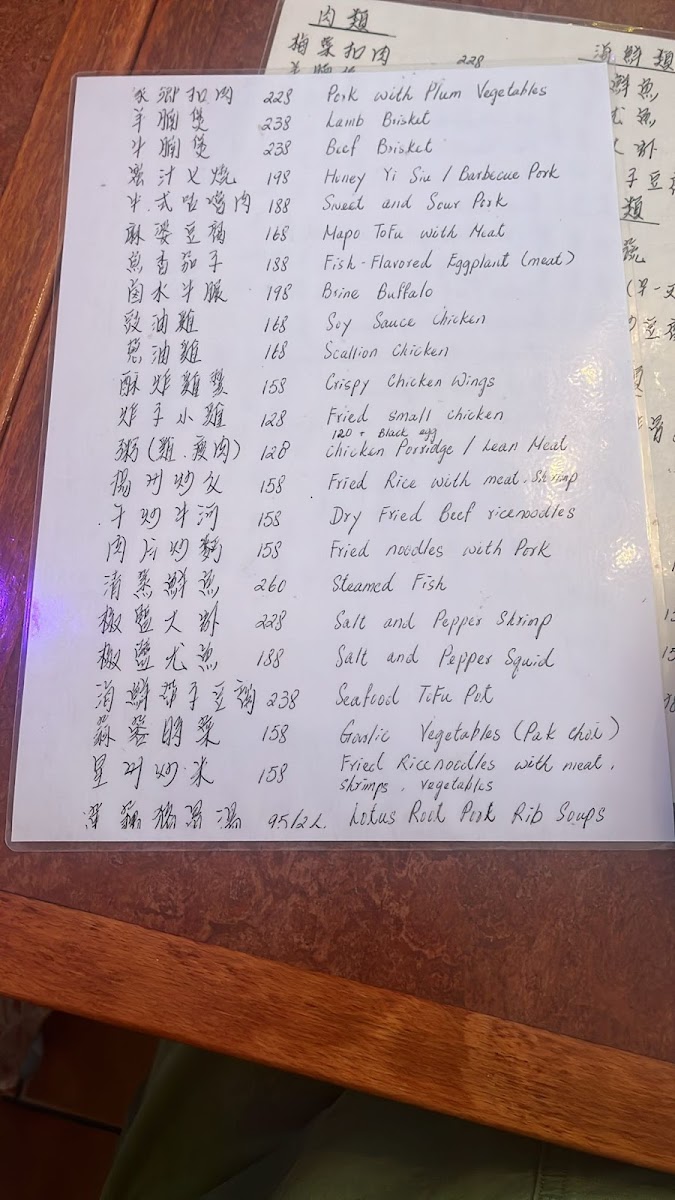 肉類
梅菜扣肉 228
海鮮類
家鄉扣肉 228 Pork with Plum Vegetables
羊腩煲 238 Lamb Brisket
牛腩煲 238 Beef Brisket
蜜汁叉燒 198 Honey Yi Siu / Barbecue Pork
咕嚕肉 188 Sweet and Sour Pork
麻婆豆腐 168 Mapo Tofu with Meat
魚香茄子 188 Fish-Flavored Eggplant (meat)
卤水牛腱 198 Brine Buffalo
豉油雞 168 Soy Sauce Chicken
葱油雞 168 Scallion Chicken
酥炸雞翼 158 Crispy Chicken Wings
炸子小雞 128 Fried small chicken
120 + Black egg
粥(雞.瘦肉) 128 Chicken Porridge / Lean Meat
揚州炒 158 Fried Rice with meat, Shrimp
干炒牛河 158 Dry Fried Beef ricenoodles
肉片炒麵 158 Fried noodles with Pork
清蒸鮮魚 260 Steamed Fish
椒鹽大虾 228 Salt and Pepper Shrimp
椒鹽尤魚 188 Salt and Pepper Squid
海鮮带子豆腐 238 Seafood ToFu Pot
蒜蓉時菜 158 Garlic Vegetables (Pak choi)
星州炒米 158 Fried Ricenoodles with meat,
shrimps, vegetables
湯 95/2人 Lotus Root Pork Rib Soups